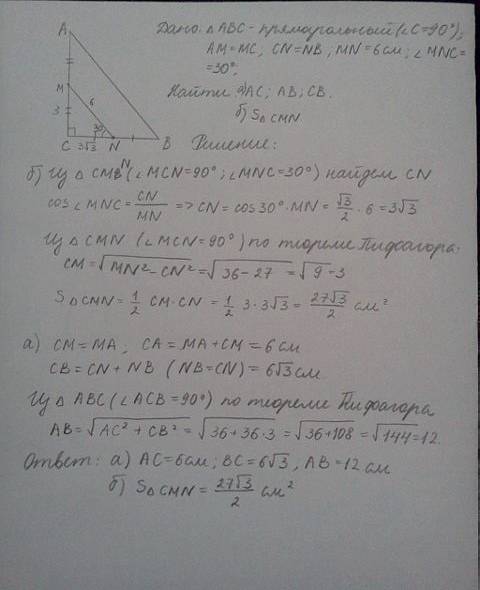 A
M
6
3
30°
C
3√3
N
B
Дано: △ABC - прямоугольный (∠C=90°);
AM=MC, CN=NB, MN=6см; ∠MNC=
=30°;
Найти а) AC; AB; CB.
б) S△CMN
Решение:
б) Из △CMN (∠MCN=90°; ∠MNC=30°) найдем CN
cos∠MNC = CN/MN => CN = cos30°·MN = √3/2 · 6 = 3√3
Из △CMN (∠MCN=90°) по теореме Пифагора.
CM = √(MN²-CN²) = √(36-27) = √9 = 3
S△CMN = 1/2 CM·CN = 1/2 3·3√3 = 27√3/2 см²
а) CM=MA; CA=MA+CM=6см
CB=CN+NB (NB=CN)=6√3см
Из △ABC (∠ACB=90°) по теореме Пифагора
AB = √(AC²+CB²) = √(36+36·3) = √(36+108) = √144 = 12.
Ответ: а) AC=6см; BC=6√3, AB=12см
б) S△CMN = 27√3/2 см²